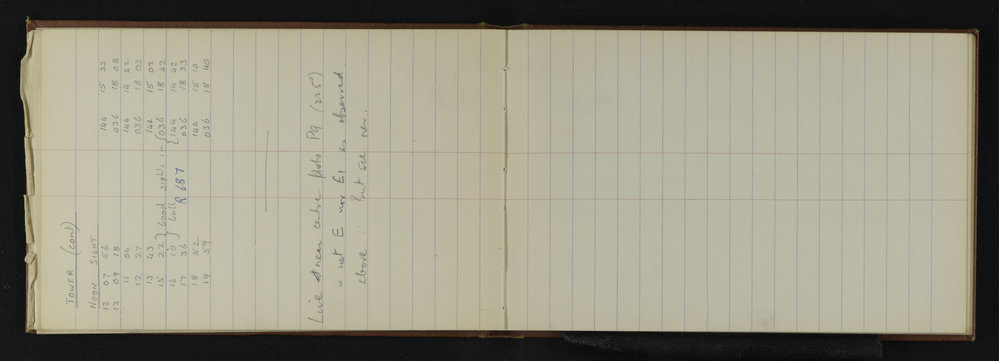 TOWER (cont)
NOON SIGHT
13 07 56 144 15 33
13 09 18 036 18 08
11 04 144 14 42
12 27 036 18 03
13 43 144 15 02
15 22 } Good sights in { 036 18 42
16 10 } lull { 144 14 42
17 36 R 687 036 18 33
18 52 144 15 10
19 59 036 18 40
Line near centre photo P9 (225°)
is not E nor E1 as observed
above. but see